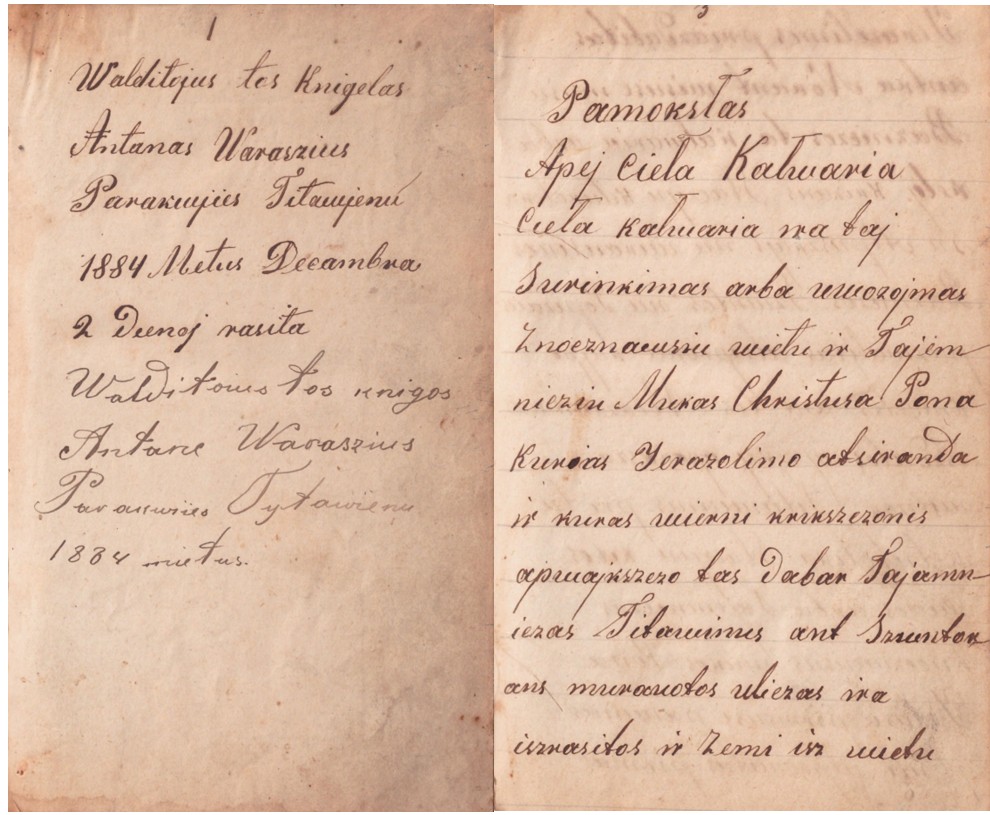 1
Walditojus tos Knigelas
Antanas Waraszius
Parakwijies Titawjenu
1884 Metus Decambra
2 Dienoj rasita
Walditoius tos knigos
Antane Waraszius
Parakwiies Tytawienu
1884 metus.
3
Pamokslas
Apej Ciela Kalwaria
Ciela kalwaria ira taj
Surinkimas arba uwozojmas
Znoeznawsiu wietu ir Tajem
nieziu Mukas Christusa Pona
Kurias Jerazolimo atsiranda
ir kuras wierni krikszezonis
apwajkszezo tas Dabar Tajamn
iezas Titawimus ant Szwentor
ans murawotos uliezas ira
iszrasitos ir Zemi isz wietu